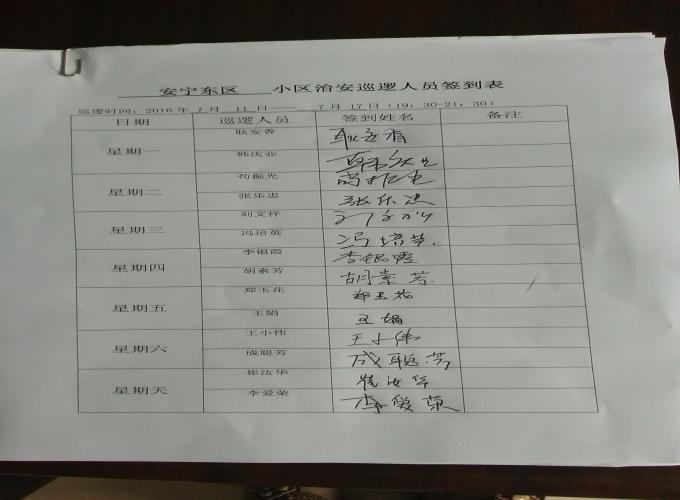 安宁东区 小区治安巡逻人员签到表
巡逻时间：2016年7月11日—— 7月17日（19：30-21：30）
日期 巡逻人员 签到姓名 备注
星期一 耿安香 耿安香
韩庆业 韩庆业
星期二 苟振光
张乐忠 张乐忠
星期三 刘文祥 刘文祥
冯培英 冯培英
星期四 李银霞 李银霞
胡素芳 胡素芳
星期五 郑玉花 郑玉花
王娟 王娟
星期六 王小伟 王小伟
成聪芳 成聪芳
星期天 崔汝华 崔汝华
李爱荣 李爱荣